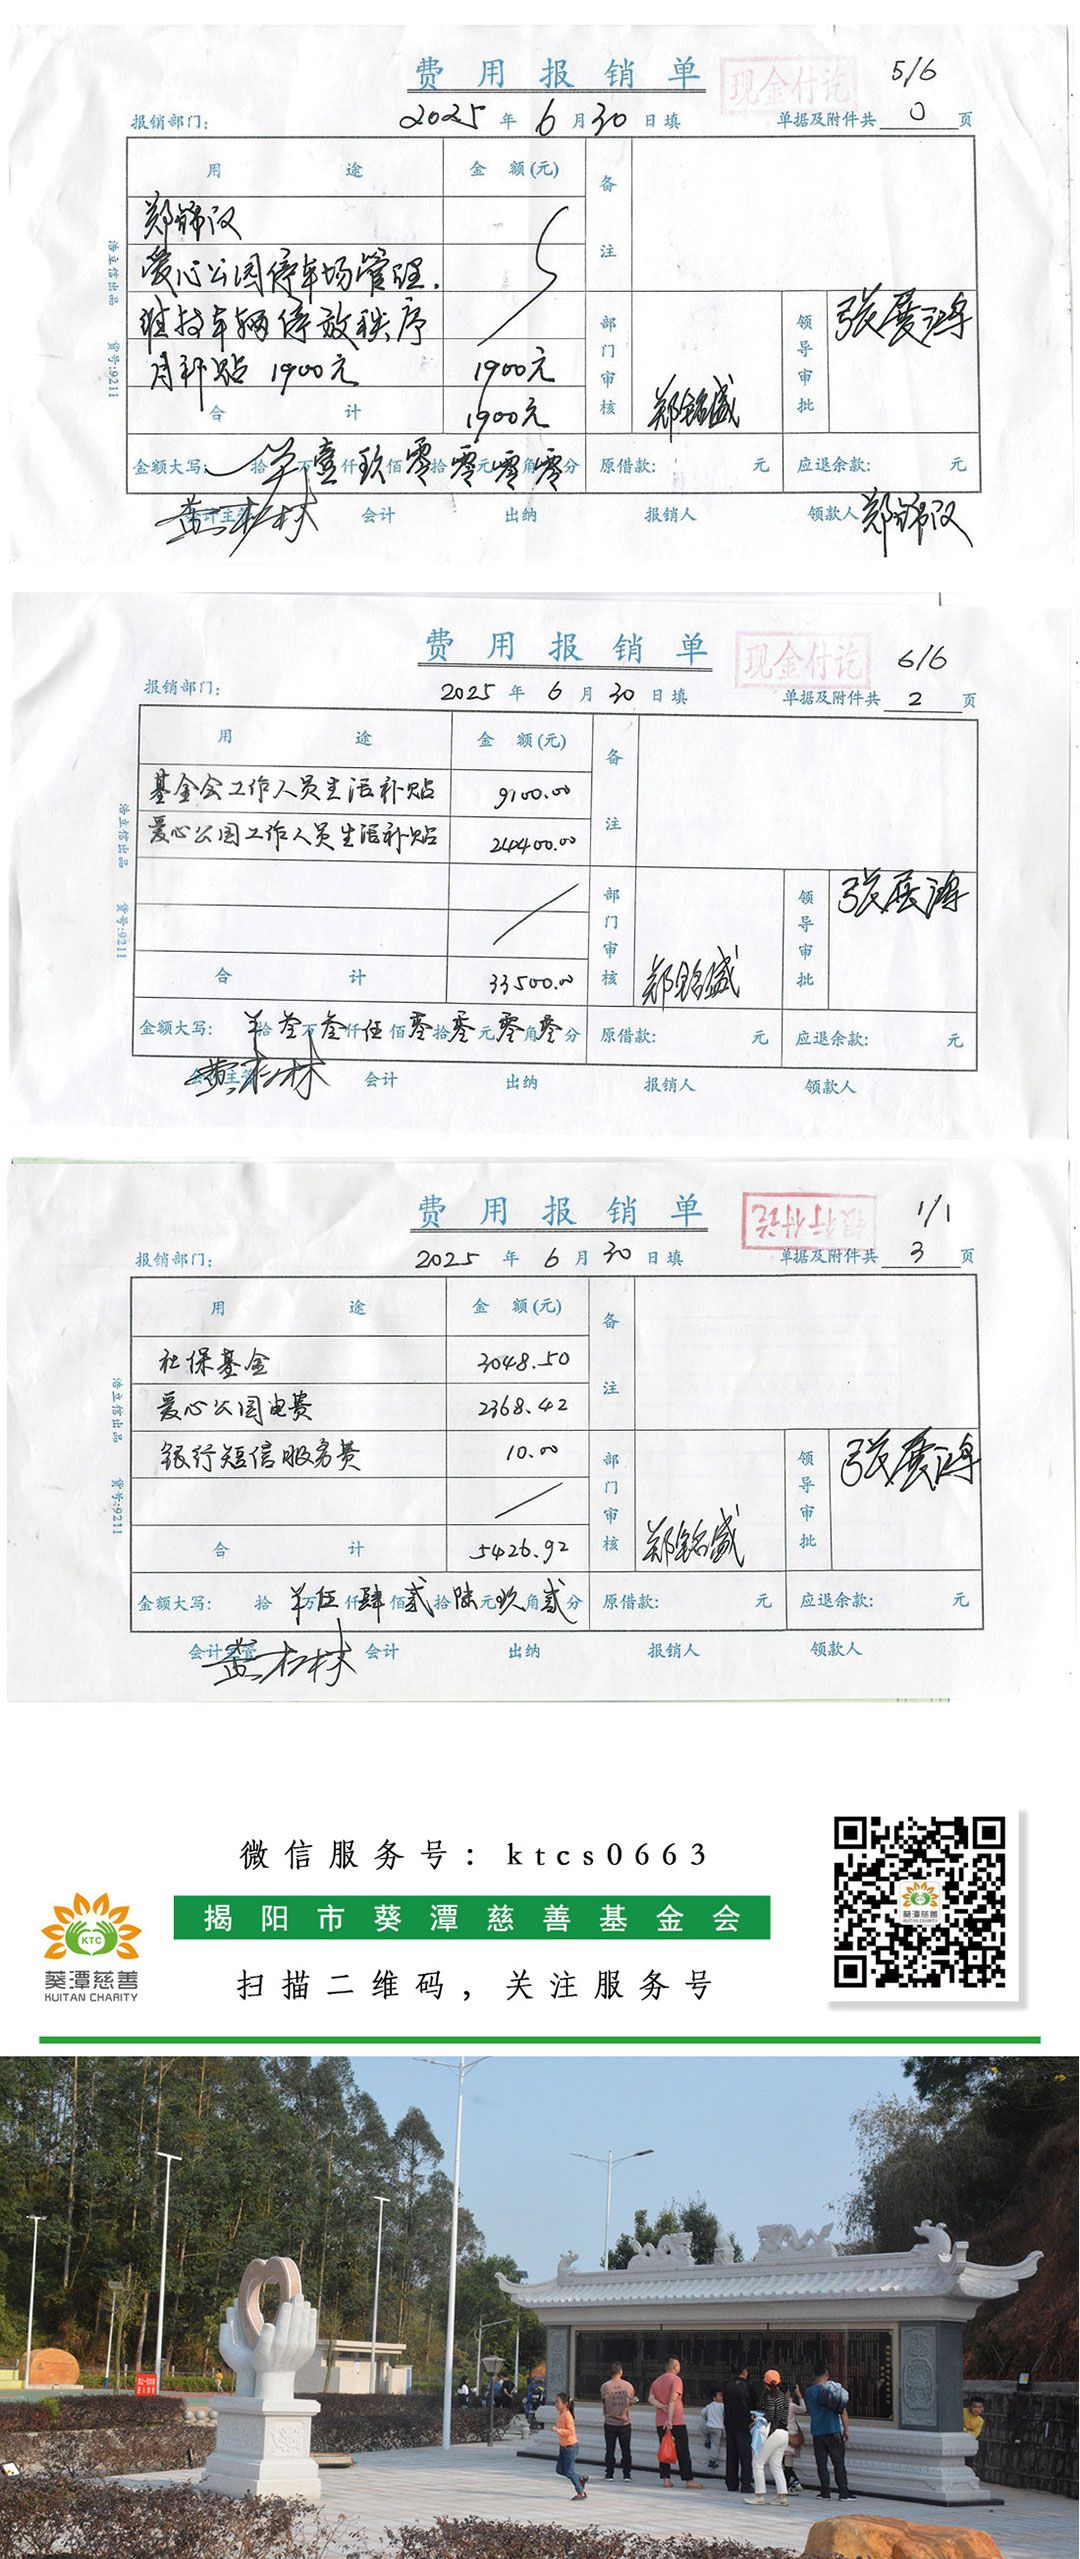 费用报销单
现金付讫
5/6
报销部门:
2025年6月30日填
单据及附件共 0 页
用途 金额(元) 备注
郑锦汉
爱心公园停车场管理.
维持车辆停放秩序
月补贴 1900元 1900元
合计 1900元
部门审核 郑铭盛 领导审批 张展鸿
金额大写: 拾 万壹仟玖佰零拾零元零角零分 原借款: 元 应退余款: 元
会计主管 会计 出纳 报销人 领款人 郑锦汉
浩立信出品 货号:9211
费用报销单
现金付讫
6/6
报销部门:
2025年6月30日填
单据及附件共 2 页
用途 金额(元) 备注
基金会工作人员生活补贴 9100.00
爱心公园工作人员生活补贴 24400.00
合计 33500.00
部门审核 郑铭盛 领导审批 张展鸿
金额大写: 拾叁万叁仟伍佰零拾零元零角零分 原借款: 元 应退余款: 元
会计主管 会计 出纳 报销人 领款人
浩立信出品 货号:9211
费用报销单
银行付讫
1/1
报销部门:
2025年6月30日填
单据及附件共 3 页
用途 金额(元) 备注
社保基金 3048.50
爱心公园电费 2368.42
银行短信服务费 10.00
合计 5426.92
部门审核 郑铭盛 领导审批 张展鸿
金额大写: 拾 万伍仟肆佰贰拾陆元玖角贰分 原借款: 元 应退余款: 元
会计主管 会计 出纳 报销人 领款人
浩立信出品 货号:9211
微信服务号: ktcs0663
揭阳市葵潭慈善基金会
扫描二维码，关注服务号
KTC
葵潭慈善
KUITAN CHARITY
葵潭慈善
KUITAN CHARITY